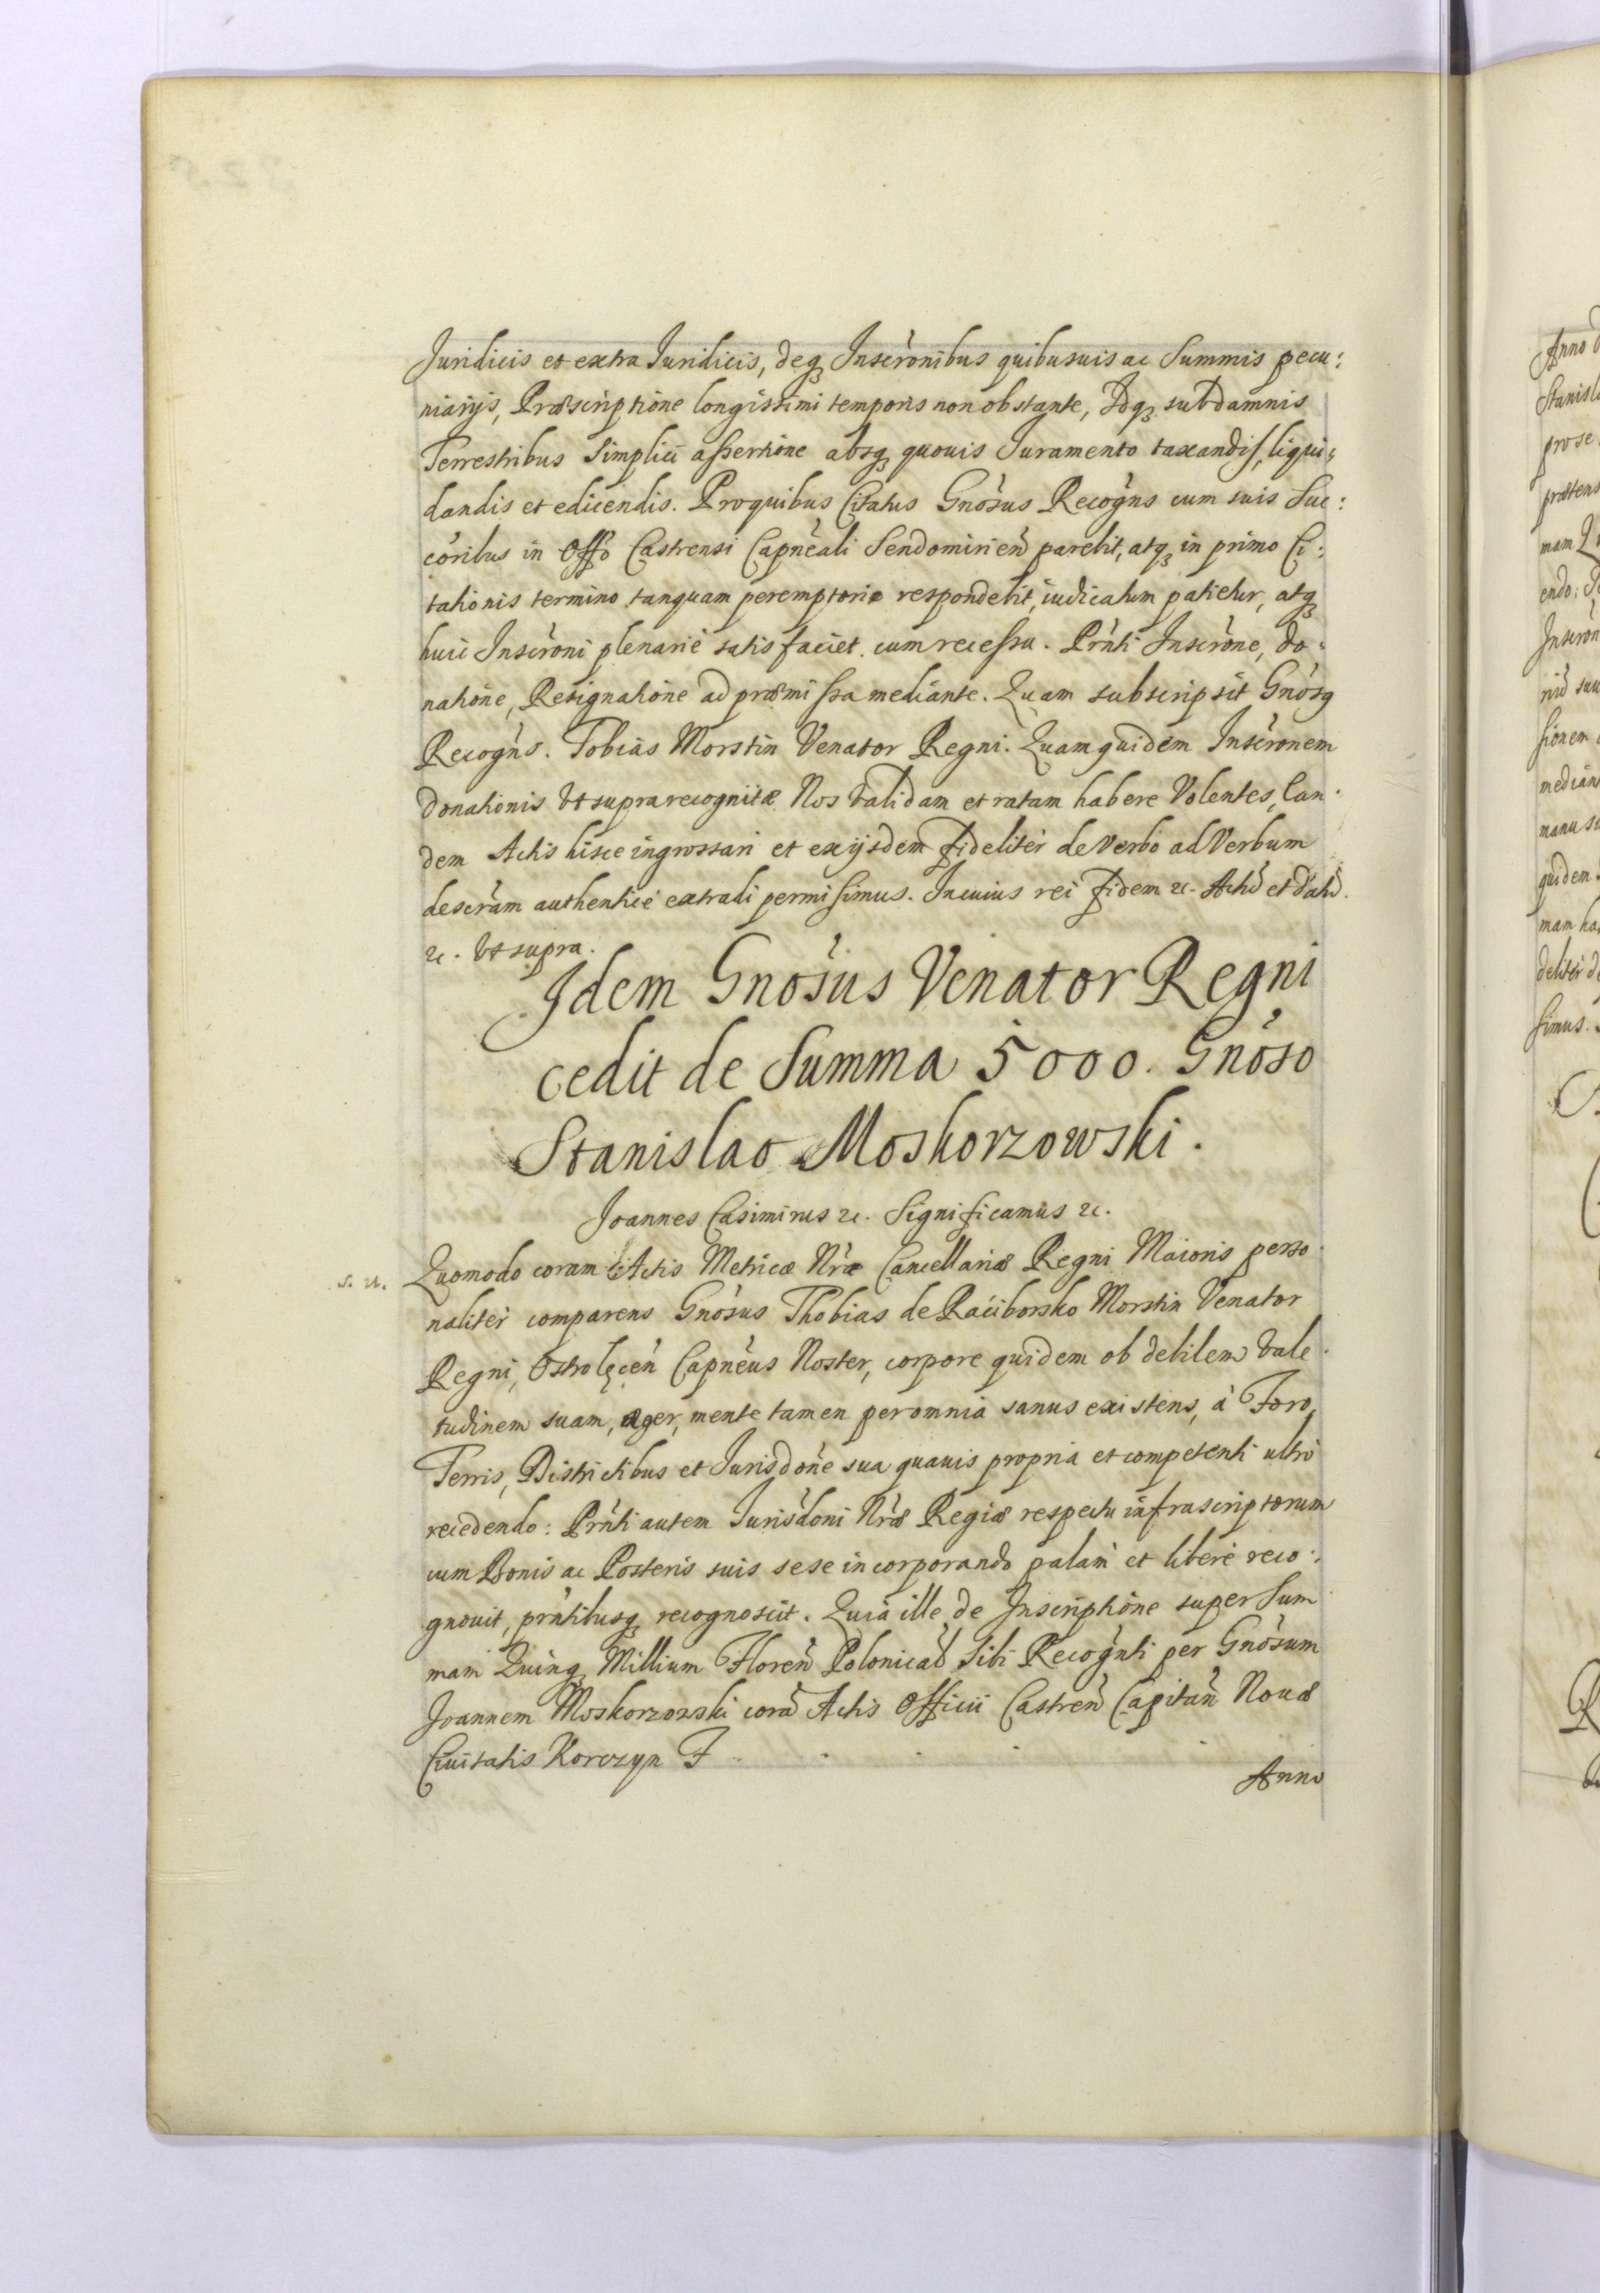 Juridicis et extra Juridicis, deq3 Inscronibus quibusuis ac Summis pecu:
niarijs, Præscriptione longissimi temporis non obstante, Idq3 sub damnis
Terrestribus simplici assertione absq3 quouis Juramento taxandis, liqui:
dandis et edicendis. Pro quibus Citatus Gnosus Recogns cum suis Suc:
coribus in Offo Castrensi Capneali Sendomirien parebit, atq3 in primo Ci:
tationis termino tanquam peremptorie respondebit, iudicatum patietur, atq3
huic Inscroni plenarie satisfaciet cum recessu. Prnti Inscrone, do:
natione, Resignatione ad præmissa mediante. Quam subscripsit Gnosq
Recogns. Tobias Morstin Venator Regni. Quam quidem Inscronem
donationis Vt supra recognitæ Nos Validam et ratam habere Volentes, Ean
dem Actis hisce ingrossari et ex ijsdem Fideliter de Verbo ad Verbum
descram authentice extradi permisimus. In cuius rei Fidem &c. Actu et datu
&c. Vt supra.
Idem Gnosus Venator Regni
cedit de Summa 5000. Gnoso
Stanislao Moskorzowski.
Joannes Casimirus &c. Significamus &c.
S. U. Quomodo coram Actis Metricæ Nræ Cancellariæ Regni Maioris perso
naliter comparens Gnosus Thobias de Raciborsko Morstin Venator
Regni, Ostrolęcen Capneus Noster, corpore quidem ob debilem Vale
tudinem suam, æger, mente tamen per omnia sanus existens, à Foro,
Terris, Districtibus et Jurisdone sua quauis propria et competenti ultro
recedendo: Prnti autem Jurisdoni Nræ Regiæ respectu infrascriptorum
cum Bonis ac Posteris suis sese incorporando palam et libere reco:
gnouit, prntibusq3 recognoscit. Quia ille de Inscriptione super Sum
mam Quinq3 Millium Floren Polonical Sibi Recognti per Gnosum
Joannem Moskorzowski cora Actis Officii Castren Capitan Nouæ
Ciuitatis Korczyn F
Anno